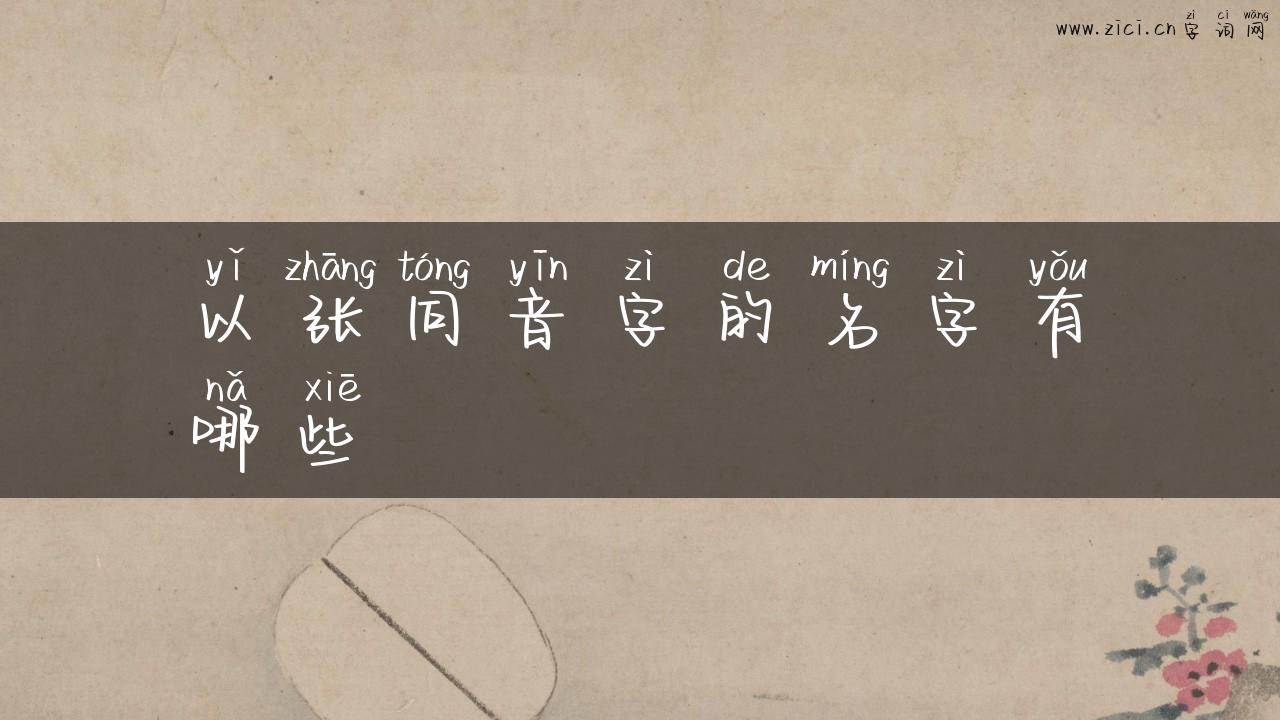 zì cí wǎng
www.zici.cn 字 词 网
yǐ zhāng tóng yīn zì de míng zì yǒu
以 张 同 音 字 的 名 字 有
nǎ xiē
哪 些